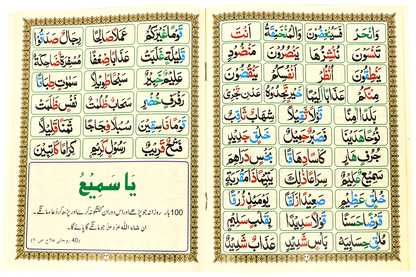 وَانْحَرْ فَسَيُنْغِضُونَ وَالْمُنْخَنِقَةُ أَنْتَ
تَنْسَوْنَ نُنْشِزُهَا يَنْصُرُونَ مَنْضُودٍ
يَنْطِقُونَ اُنْظُرْ اَنْفُسَكُمْ يَنْقُضُونَ
مِنْكُمْ عَذَابًا اَلِيْمًا
بَلَدًا اٰمِنًا قَوْلًا ثَقِيْلًا شِهَابٌ ثَاقِبٌ
فَصَبْرٌ جَمِيْلٌ خَلْقٍ جَدِيْدٍ
جُرُفٍ هَارٍ كَاْسًا دِهَاقًا بَخْسٍ دَرَاهِمَ
سَمِيْعٌ عَلِيْمٌ سِرَاعًا ذٰلِكَ يَتِيْمًا ذَا مَقْرَبَةٍ
خُلُقٍ عَظِيْمٍ صَعِيْدًا زَلَقًا يَوْمَئِذٍ زُرْقًا
قَرْضًا حَسَنًا قَوْلًا سَدِيْدًا بِقَلْبٍ سَلِيْمٍ
مُلٰقٍ حِسَابِيَهْ عَذَابٌ شَدِيْدٌ
قَوْمًا غَيْرَكُمْ عَمَلًا صَالِحًا رِجَالٌ صَدَقُوْا
قَلِيْلَةٍ غَلَبَتْ عَذَابًا ضِعْفًا مُسْفِرَةٌ ضَاحِكَةٌ
عَلِيْمٌ خَبِيْرٌ سَبْحًا طَوِيْلًا سَمٰوٰتٍ طِبَاقًا
رَفْرَفٍ خُضْرٍ سَحَابٌ ظُلُمٰتٌ نَفْسٍ ظَلَمَتْ
قَوْمًا فَاسِقِيْنَ سُبُلًا فِجَاجًا ثَمَنًا قَلِيْلًا
فَتْحٌ قَرِيْبٌ رَسُوْلٌ كَرِيْمٌ كِرَامًا كَاتِبِيْنَ
يَا سَمِيْعُ
100 بار روزانہ جو پڑھے اور اس دوران گفتگو نہ کرے اور پڑھ کر دعا مانگے۔
ان شاء اللہ عزوجل جو مانگے گا پائے گا۔
(40 روحانی علاج ص ۷)